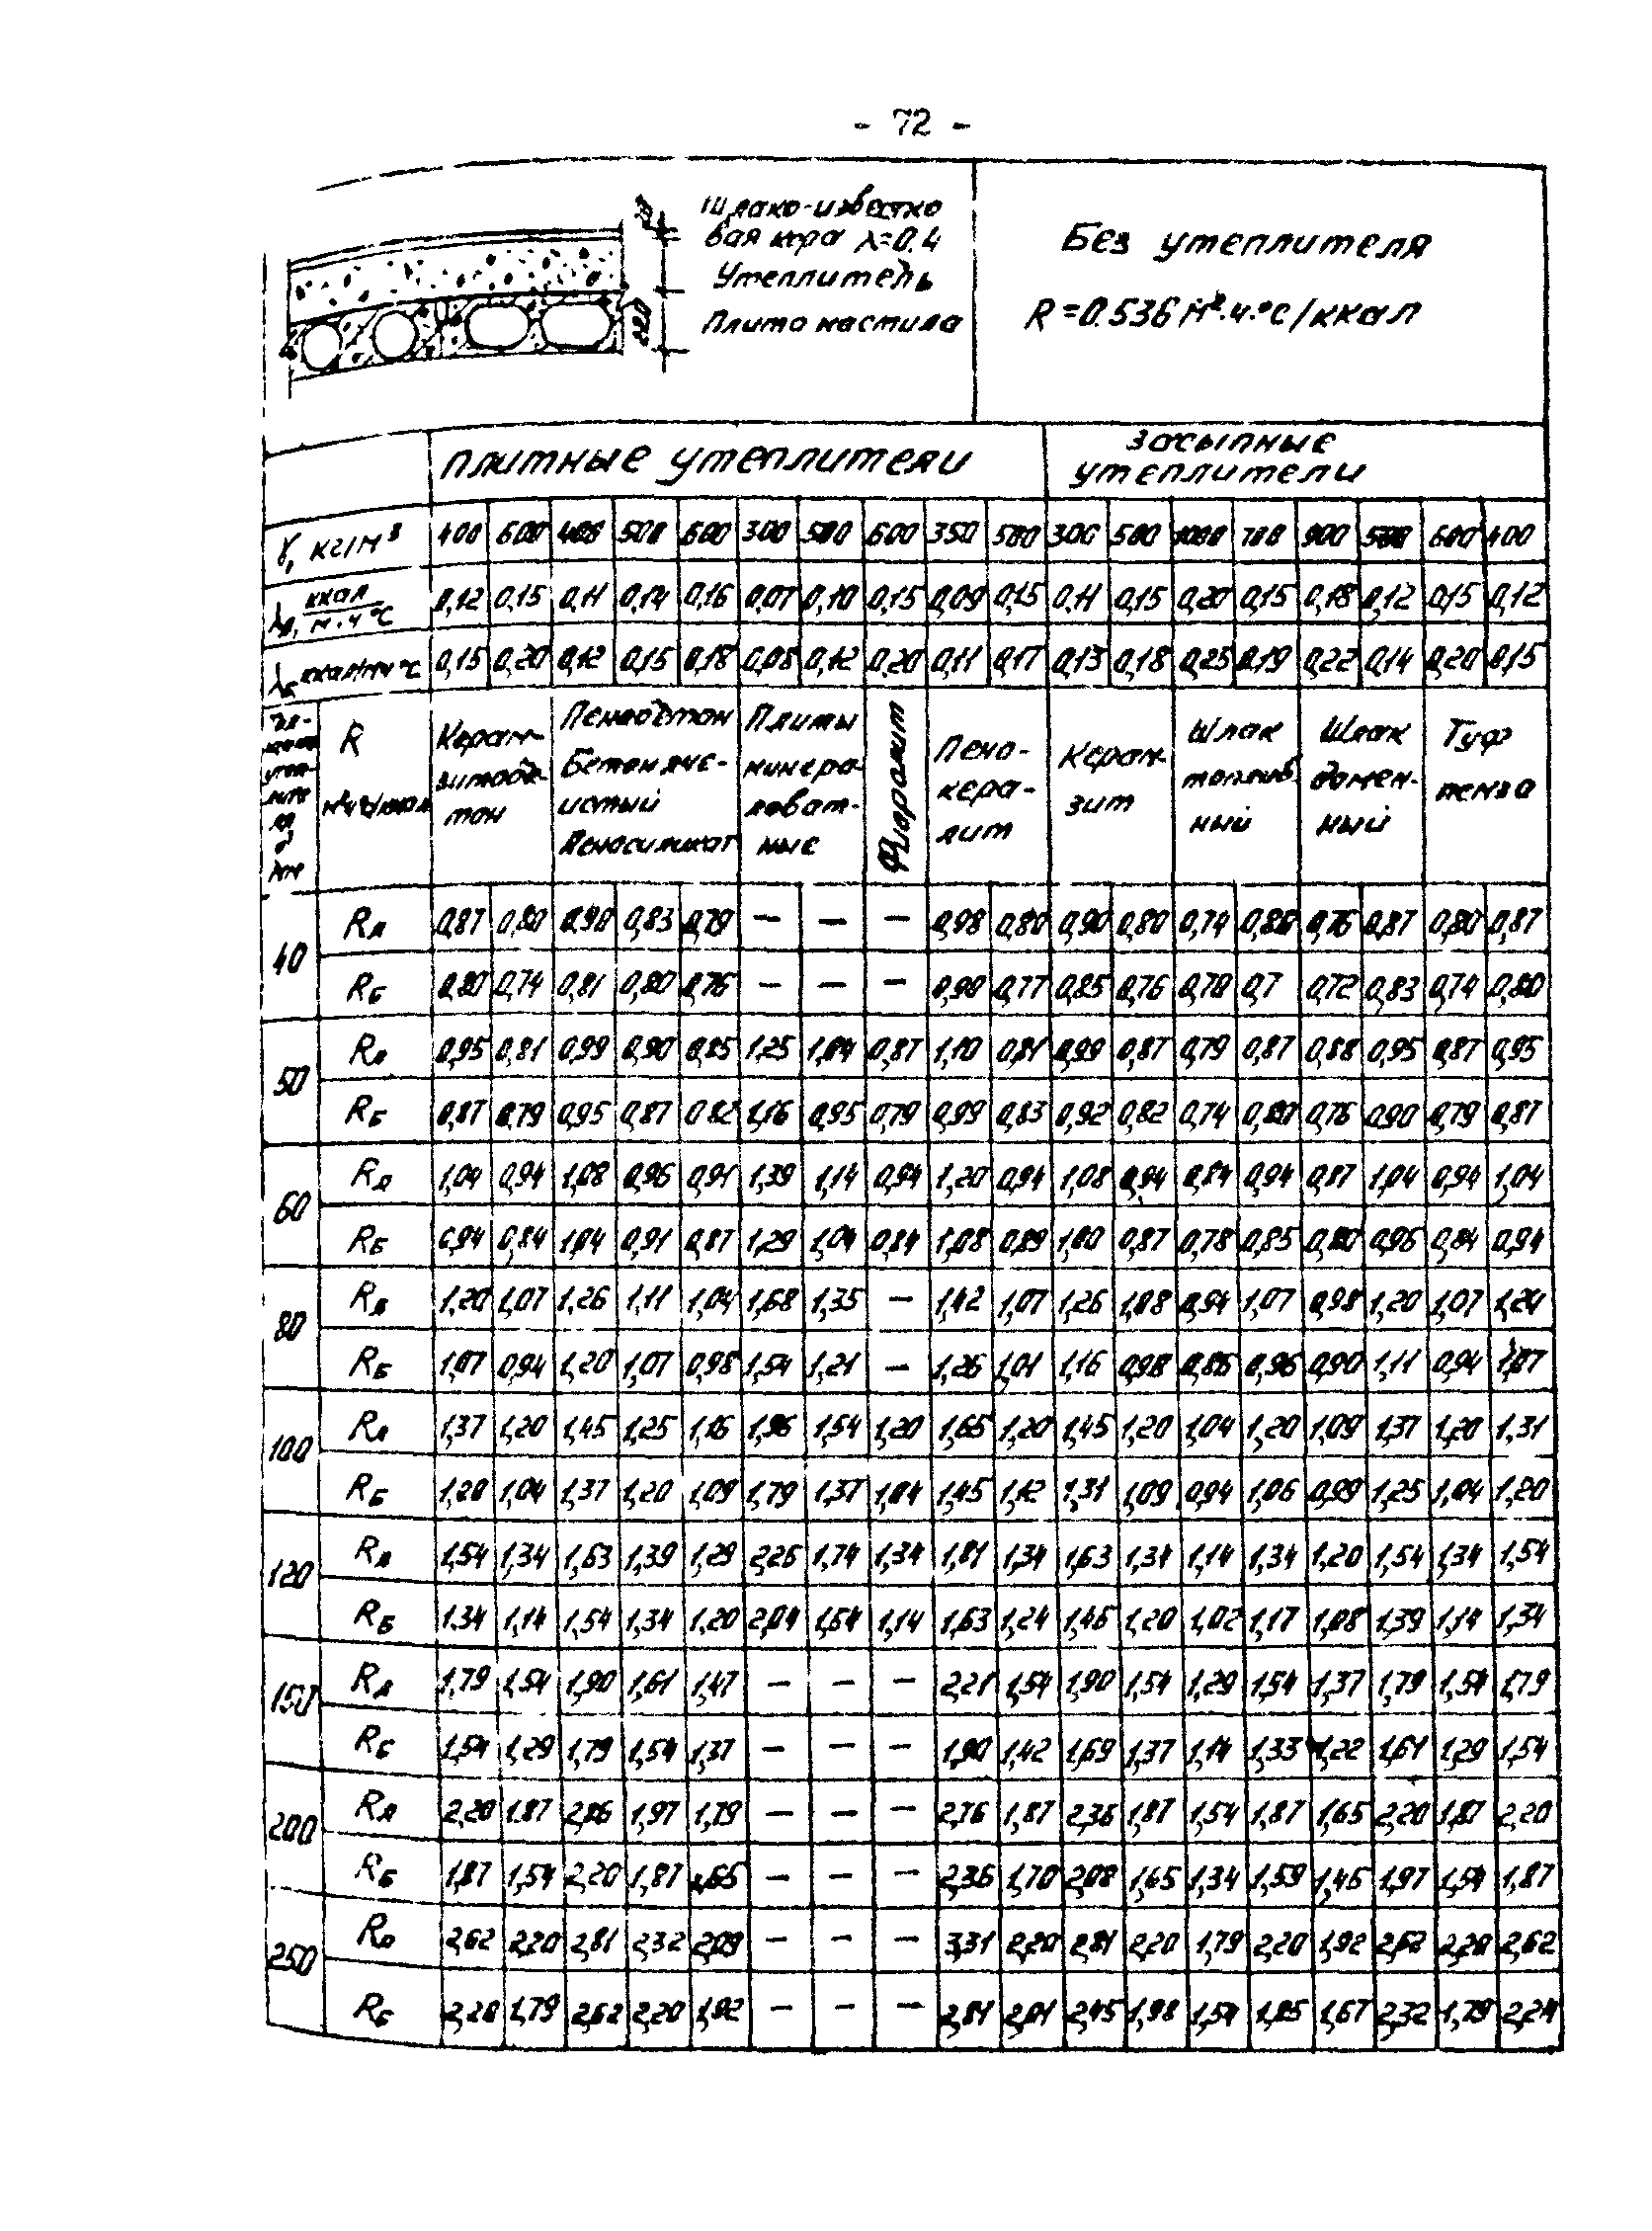 - 72 -
Шлако-известко
вая кора λ=0.4
Утеплитель
Плита настила
220
Без утеплителя
R=0.536 м².ч.°с/ккал
плитные утеплители
засыпные
утеплители
γ, кг/м³ 400 600 400 500 600 300 500 600 350 500 300 500 1000 700 900 500 600 400
λА, ккал/м.ч°С 0,12 0,15 0,11 0,14 0,16 0,07 0,10 0,15 0,09 0,15 0,11 0,15 0,20 0,15 0,18 0,12 0,15 0,12
λБ ккал/мч°С 0,15 0,20 0,12 0,15 0,18 0,08 0,12 0,20 0,11 0,17 0,13 0,18 0,25 0,19 0,22 0,14 0,20 0,15
R
Керам-
зитобе-
тон
Пенобетон
Бетон яче-
истый
Пеносиликат
Плиты
минера-
ловат-
ные
Фибролит
Пено-
кера-
лит
Керам-
зит
Шлак
топлив.
ный
Шлак
домен-
ный
Туф
пемза
40 RА 0,87 0,80 0,90 0,83 0,79 — — — 0,98 0,80 0,90 0,80 0,74 0,80 0,76 0,87 0,80 0,87
RБ 0,80 0,74 0,81 0,80 0,76 — — — 0,90 0,77 0,85 0,76 0,70 0,7 0,72 0,83 0,74 0,80
50 RА 0,95 0,81 0,99 0,90 0,85 1,25 1,04 0,87 1,10 0,81 0,99 0,87 0,79 0,87 0,88 0,95 0,87 0,95
RБ 0,87 0,79 0,95 0,87 0,82 1,16 0,95 0,79 0,99 0,83 0,92 0,82 0,74 0,80 0,76 0,90 0,79 0,87
60 RА 1,04 0,94 1,08 0,96 0,91 1,39 1,14 0,94 1,20 0,94 1,08 0,94 0,84 0,94 0,87 1,04 0,94 1,04
RБ 0,94 0,84 1,04 0,91 0,87 1,29 1,04 0,84 1,08 0,89 1,00 0,87 0,78 0,85 0,80 0,96 0,84 0,94
80 RА 1,20 1,07 1,26 1,11 1,04 1,68 1,35 — 1,42 1,07 1,26 1,08 0,94 1,07 0,98 1,20 1,07 1,24
RБ 1,07 0,94 1,20 1,07 0,98 1,54 1,21 — 1,26 1,01 1,16 0,98 0,86 0,96 0,90 1,11 0,94 1,07
100 RА 1,37 1,20 1,45 1,25 1,16 1,96 1,54 1,20 1,65 1,20 1,45 1,20 1,04 1,20 1,09 1,37 1,20 1,31
RБ 1,20 1,04 1,37 1,20 1,09 1,79 1,37 1,04 1,45 1,12 1,31 1,09 0,94 1,06 0,99 1,25 1,04 1,20
120 RА 1,54 1,34 1,63 1,39 1,29 2,26 1,74 1,34 1,81 1,34 1,63 1,34 1,14 1,34 1,20 1,54 1,34 1,54
RБ 1.34 1,14 1,54 1,34 1,20 2,04 1,54 1,14 1,63 1,24 1,46 1,20 1,02 1,17 1,08 1,39 1,14 1,34
150 RА 1,79 1,54 1,90 1,61 1,47 — — — 2,21 1,54 1,90 1,54 1,29 1,54 1,37 1,79 1,54 1,79
RБ 1,54 1,29 1,79 1,54 1,37 — — — 1,90 1,42 1,69 1,37 1,14 1,33 1,22 1,61 1,29 1,54
200 RА 2,20 1.87 2,36 1,97 1,79 — — — 2,76 1,87 2,36 1,87 1,54 1,87 1,65 2,20 1,87 2,20
RБ 1,87 1,54 2,20 1,87 1,65 — — — 2,36 1,70 2,08 1,65 1,34 1,59 1,46 1,97 1,54 1,87
250 RА 2,62 2,20 2,81 2,32 2,09 — — — 3,31 2,20 2,81 2,20 1,79 2,20 1,92 2,62 2,20 2,62
RБ 2,20 1,79 2,62 2,20 1,92 — — — 2,81 2,01 2,45 1,98 1,54 1,85 1,67 2,32 1,79 2,24